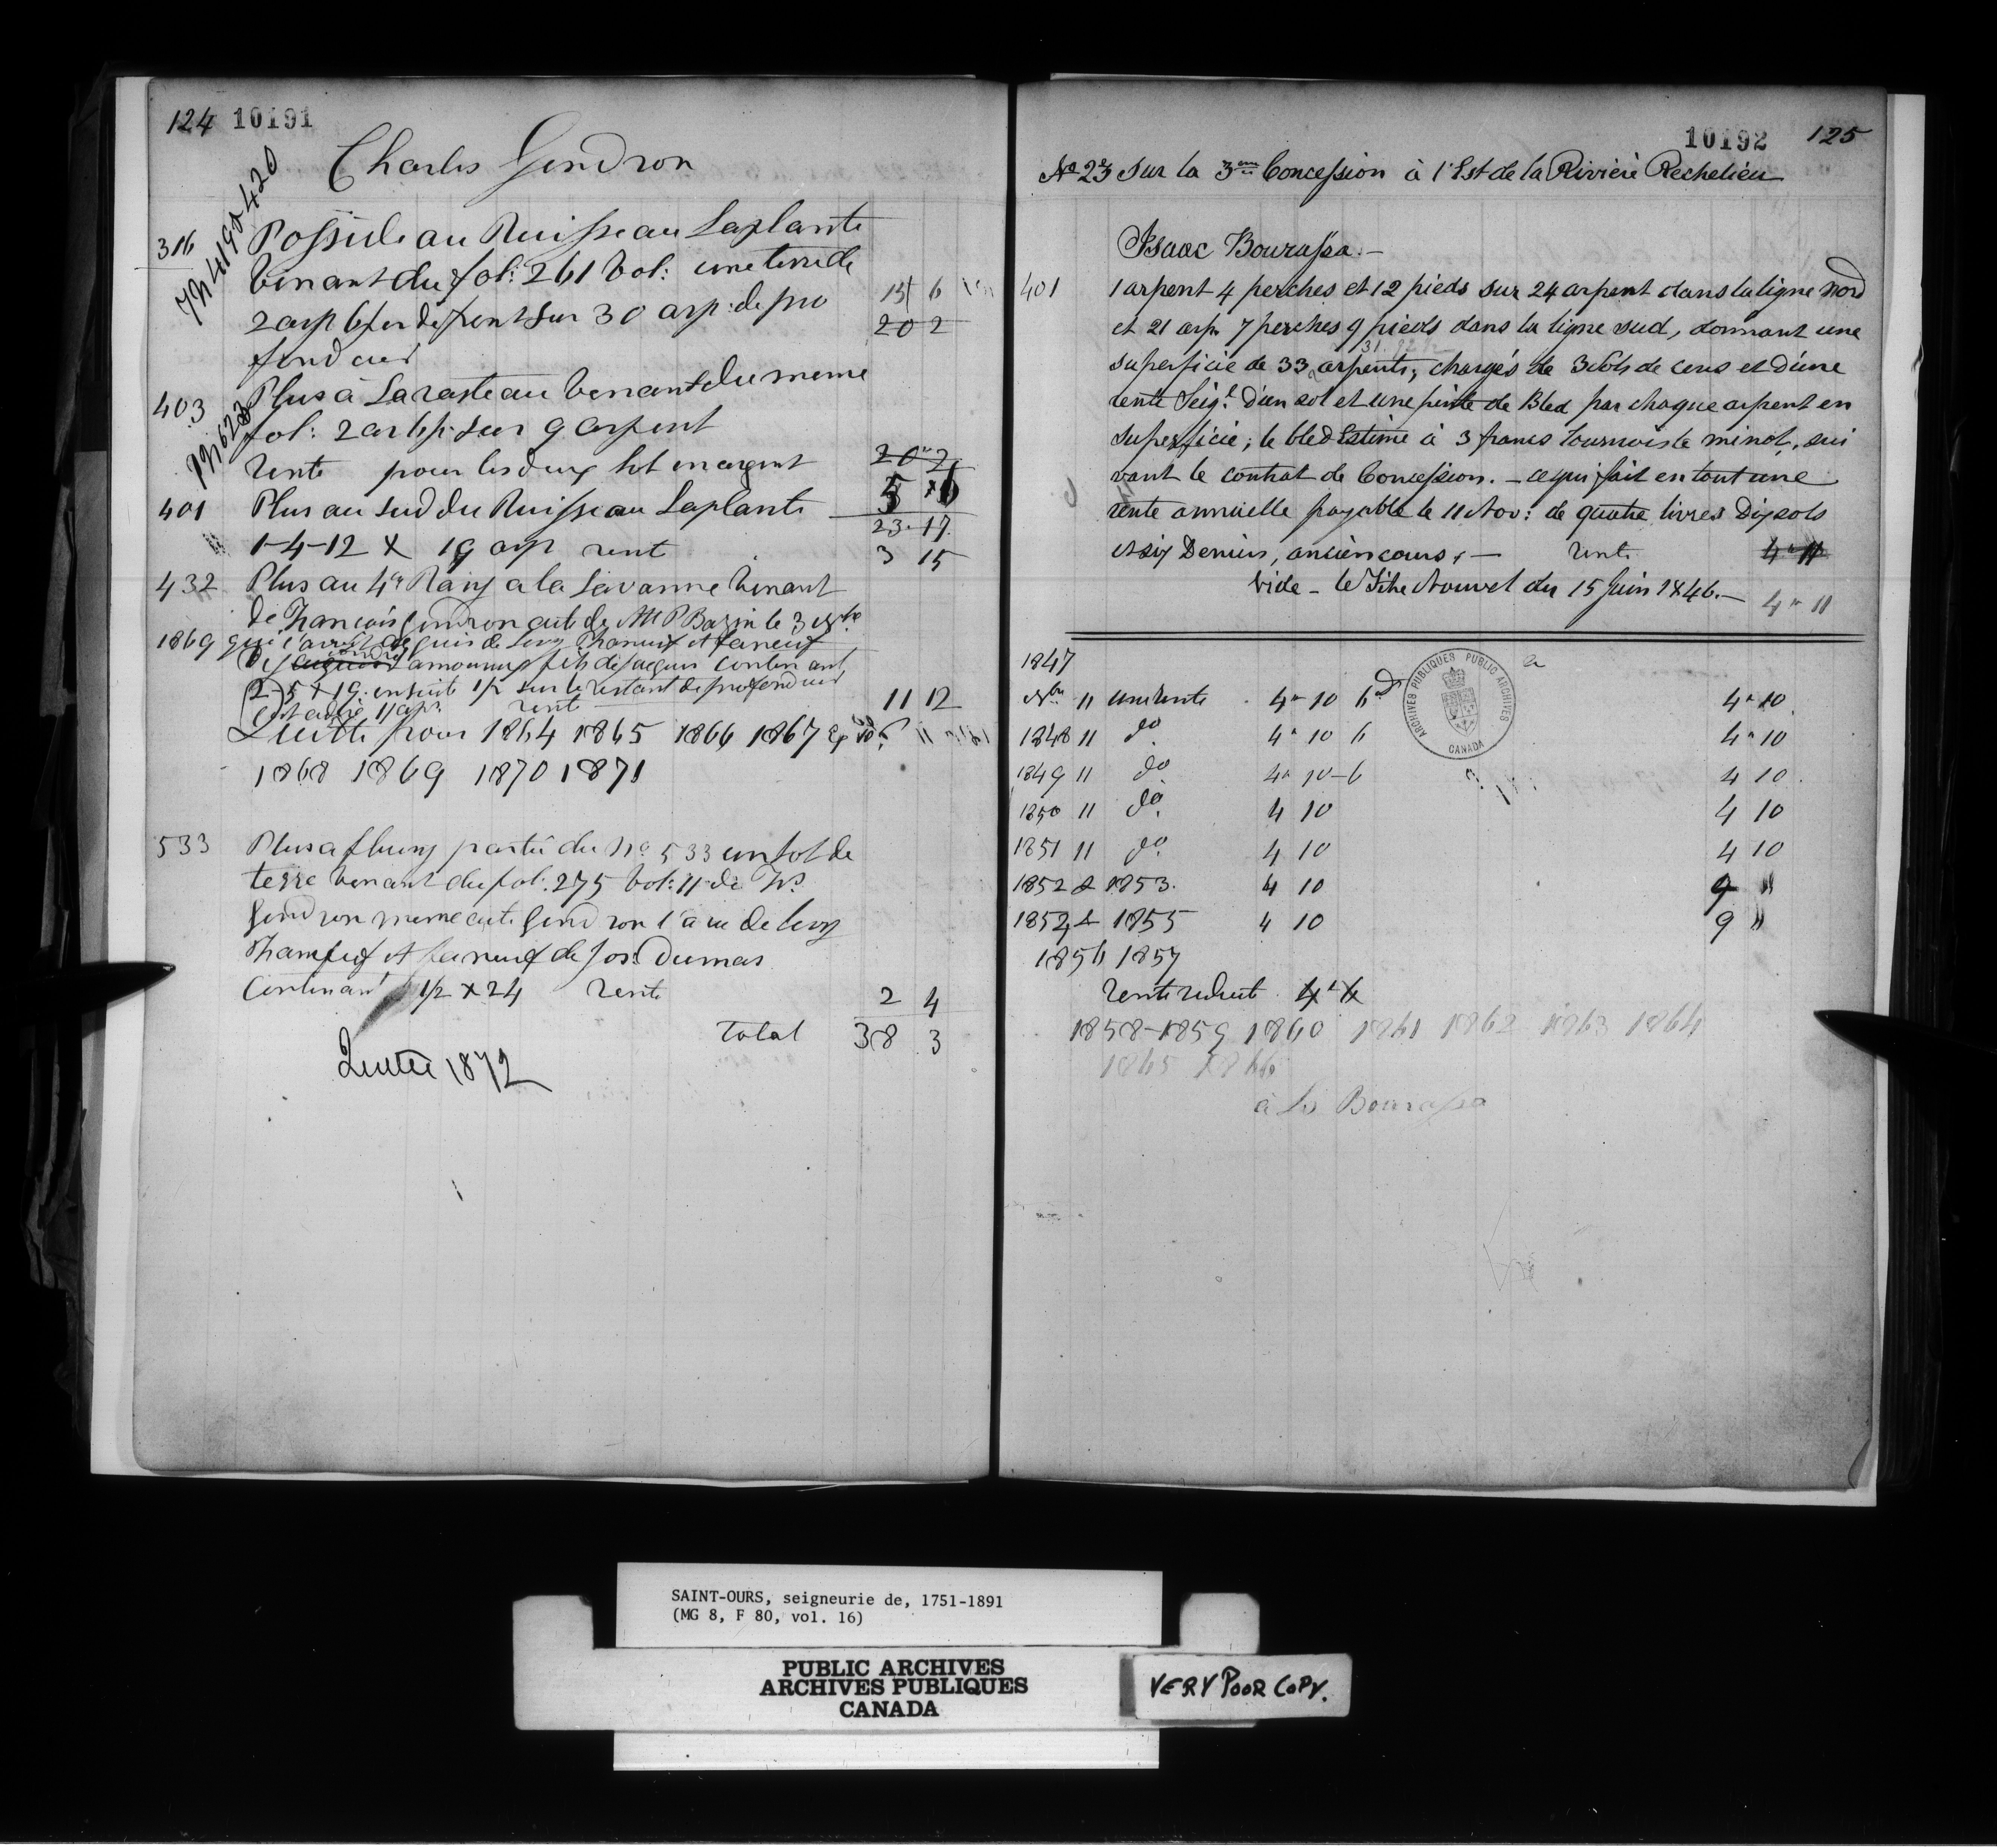 124 10191
Charles Gendron
Nos 419 & 420
316 Possede au Ruisseau Laplante
venant du fol: 261 Vol: une terre de
2 arp 6 per de front sur 30 arp: de pro 15 6
fondeur 20 2
403 Plus à La rasteau venant du meme
No 623
fol: 2 ar 6 p: sur 9 arpent
rente pour les deux lot en argent 20 " 2
5 " 6
401 Plus au sud du Ruisseau Laplante 23 " 17
1-4-12 X 19 arp rent 3 15
432 Plus au 4e Rang a la Savanne venant
de François Gendron acte de Mtre P Bazin le 3
1869 qui l'avoit
fils de Jacques contenant
2-5 X 19. ensuite 1/2 sur le restant de profondeur
rente 11 12
Quitte pour 1864 1865 1866 1867
1868 1869 1870 1871
533 Plus a partie du No 533 un lot de
terre venant du fol: 275 Vol: 11 de
Gendron meme acte Gendron l'a eu de
de Jos: Dumas
Contenant 1/2 X 24 rente 2 4
Total 38 3
Quitte 1872
10192 125
No 23 Sur la 3eme Concession à l'Est de la Rivière Rechelieu
Isaac Bourassa.-
401 1 arpent 4 perches et 12 pieds sur 24 arpent dans la ligne nord
et 21 arp. 7 perches 9 pieds dans la ligne sud, donnant une
superficie de 33 arpents, chargés de 3 sols de cens et d'une
rente Seigl. d'un sol et une pinte de Bled par chaque arpent en
superficie; le bled Estimé à 3 francs tournois le minot, sui
vant le contrat de Concession. - ce qui fait en tout une
rente annuelle payable le 11 Nov: de quatre livres dix sols
et six Deniers, ancien cours, - rente 4 " 11
Vide - le Titre Nouvel du 15 Juin 1846. - 4 " 11
1847
Nbre 11 une rente 4 " 10 6d 4 " 10
1848 11 do 4 " 10 6 4 " 10
1849 11 do 4 " 10 - 6 4 10
1850 11 do 4 10 4 10
1851 11 do 4 10 4 10
1852 & 1853. 4 10 9 "
1854 & 1855 4 10 9 "
1856 1857
rente reduite 4 " 4
1858-1859 1860 1861 1862 1863 1864
1865 1866
à Ls Bourassa
ARCHIVES PUBLIQUES PUBLIC ARCHIVES
CANADA
SAINT-OURS, seigneurie de, 1751-1891
(MG 8, F 80, vol. 16)
PUBLIC ARCHIVES
ARCHIVES PUBLIQUES
CANADA
VERY POOR COPY.